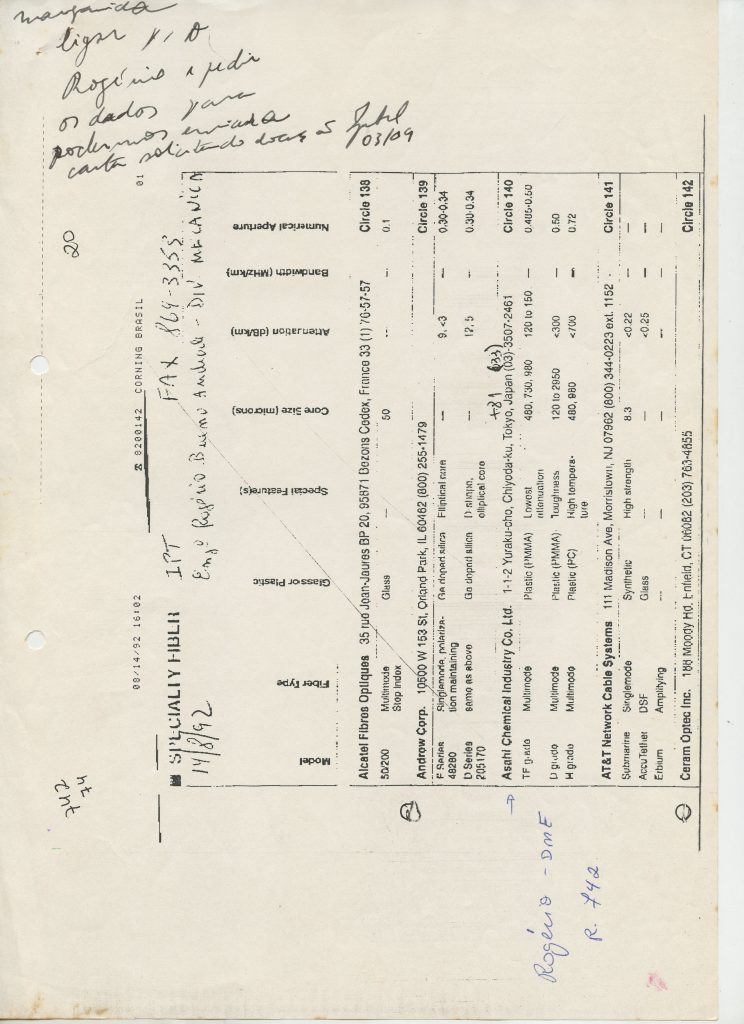 margarida
ligar p/ o
Rogério e pedir
os dados para
podermos enviar a
carta solicitando
03/09
20
742
74
08/14/92 16:02 0200142 CORNING BRASIL 01
SPECIALTY FIBER IPT FAX 869-3353
14/8/92 Rogério Bueno Andrade - DIV MECANICA
Model Fiber Type Glass or Plastic Special Feature(s) Core Size (microns) Attenuation (dB/km) Bandwidth (MHz/km) Numerical Aperture
Alcatel Fibres Optiques 35 rue Jean-Jaures BP 20, 95871 Bezons Cedex, France 33 (1) 76-57-57 Circle 138
50/200 Multimode Glass — 50 — — 0.1
Step Index
Andrew Corp. 10500 W 153 St, Orland Park, IL 60462 (800) 255-1479 Circle 139
E Series Singlemode, polariza- Ge doped silica Elliptical core — 9, <3 — 0.30-0.34
48280 tion maintaining
D Series same as above Ge doped silica D shape, — 12, 5 — 0.30-0.34
205170 elliptical core
+81 (33)
Asahi Chemical Industry Co. Ltd. 1-1-2 Yuraku-cho, Chiyoda-ku, Tokyo, Japan (03)-3507-2461 Circle 140
TF grade Multimode Plastic (PMMA) Lowest 480, 730, 980 120 to 150 — 0.485-0.50
attenuation
D grade Multimode Plastic (PMMA) Toughness 120 to 2950 <300 — 0.50
H grade Multimode Plastic (PC) High tempera- 480, 980 <700 — 0.72
ture
AT&T Network Cable Systems 111 Madison Ave, Morristown, NJ 07962 (800) 344-0223 ext. 1152 Circle 141
Submarine Singlemode Synthetic High strength 8.3 <0.22 — —
AccuTether DSF Glass — — <0.25 — —
Erbium Amplifying — — — — — —
Ceram Optec Inc. 188 Moody Rd, Enfield, CT 06082 (203) 763-4855 Circle 142
→
Rogério - DME
R. 742